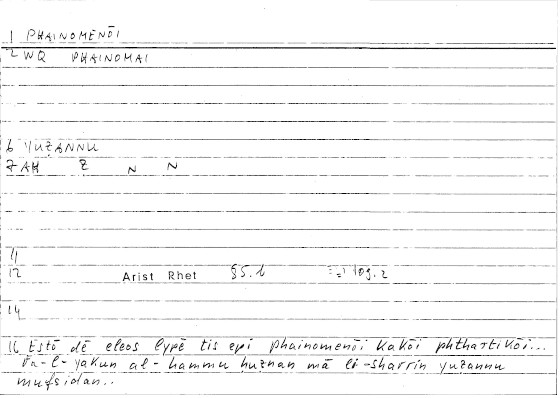 1 PHAINOMENŌI
2 WQ PHAINOMAI
6 YUẒANNU
7 AH Ẓ N N
11
12 Arist Rhet
14
16 Estō dē eleos lypē tis epi phainomenōi kakōi phthartikōi...
Fa-l-yakun al-hammu huznan mā li-sharrin yuẓannu
mufsidan..